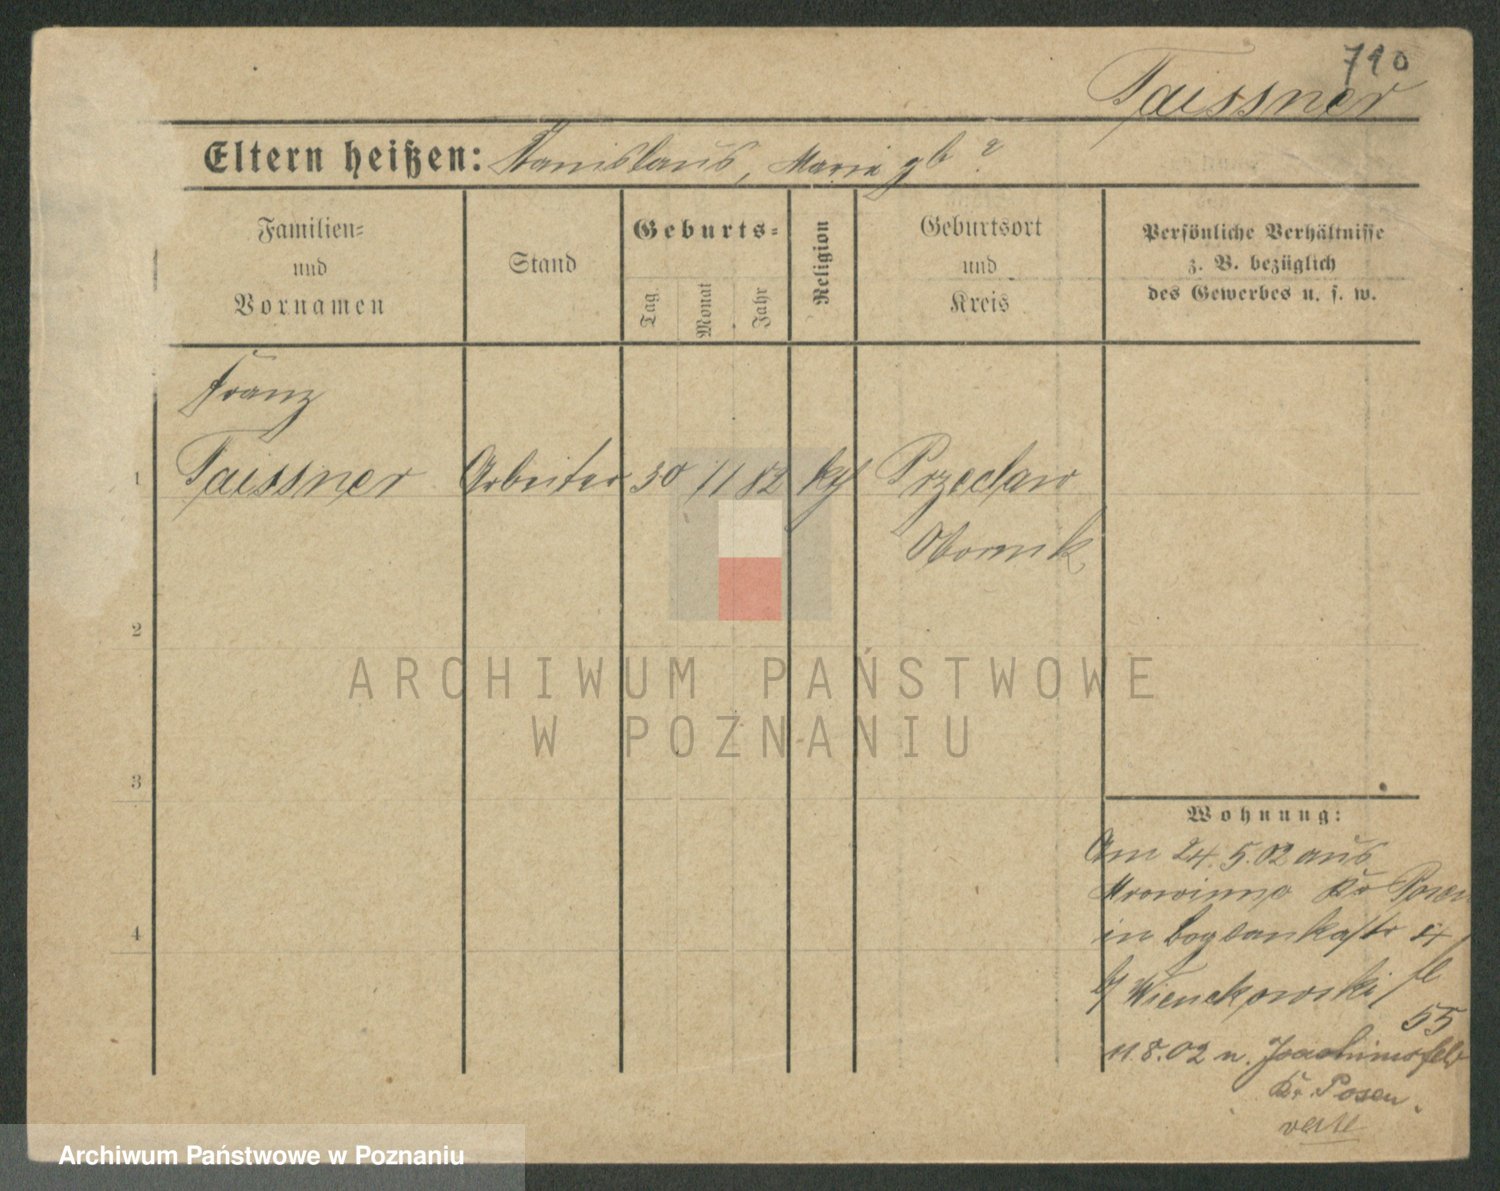 710
Taissner
Eltern heißen: Stanislaus, Maria gb ?
Familien=
und
Vornamen
Stand
Geburts=
Tag
Monat
Jahr
Religion
Geburtsort
und
Kreis
Persönliche Verhältnisse
z. B. bezüglich
des Gewerbes u. s. w.
Franz
1 Taissner Arbeiter 30 11 82 kth Przeclaw
Obornik
2
ARCHIWUM PAŃSTWOWE
W POZNANIU
3
Wohnung:
Am 24.5.02 aus
Mrowinno Kr Posen
in Bogdankastr
4
b/ Wienckowski
55
11.8.02 n. Joachimsfeld
Kr. Posen
Archiwum Państwowe w Poznaniu